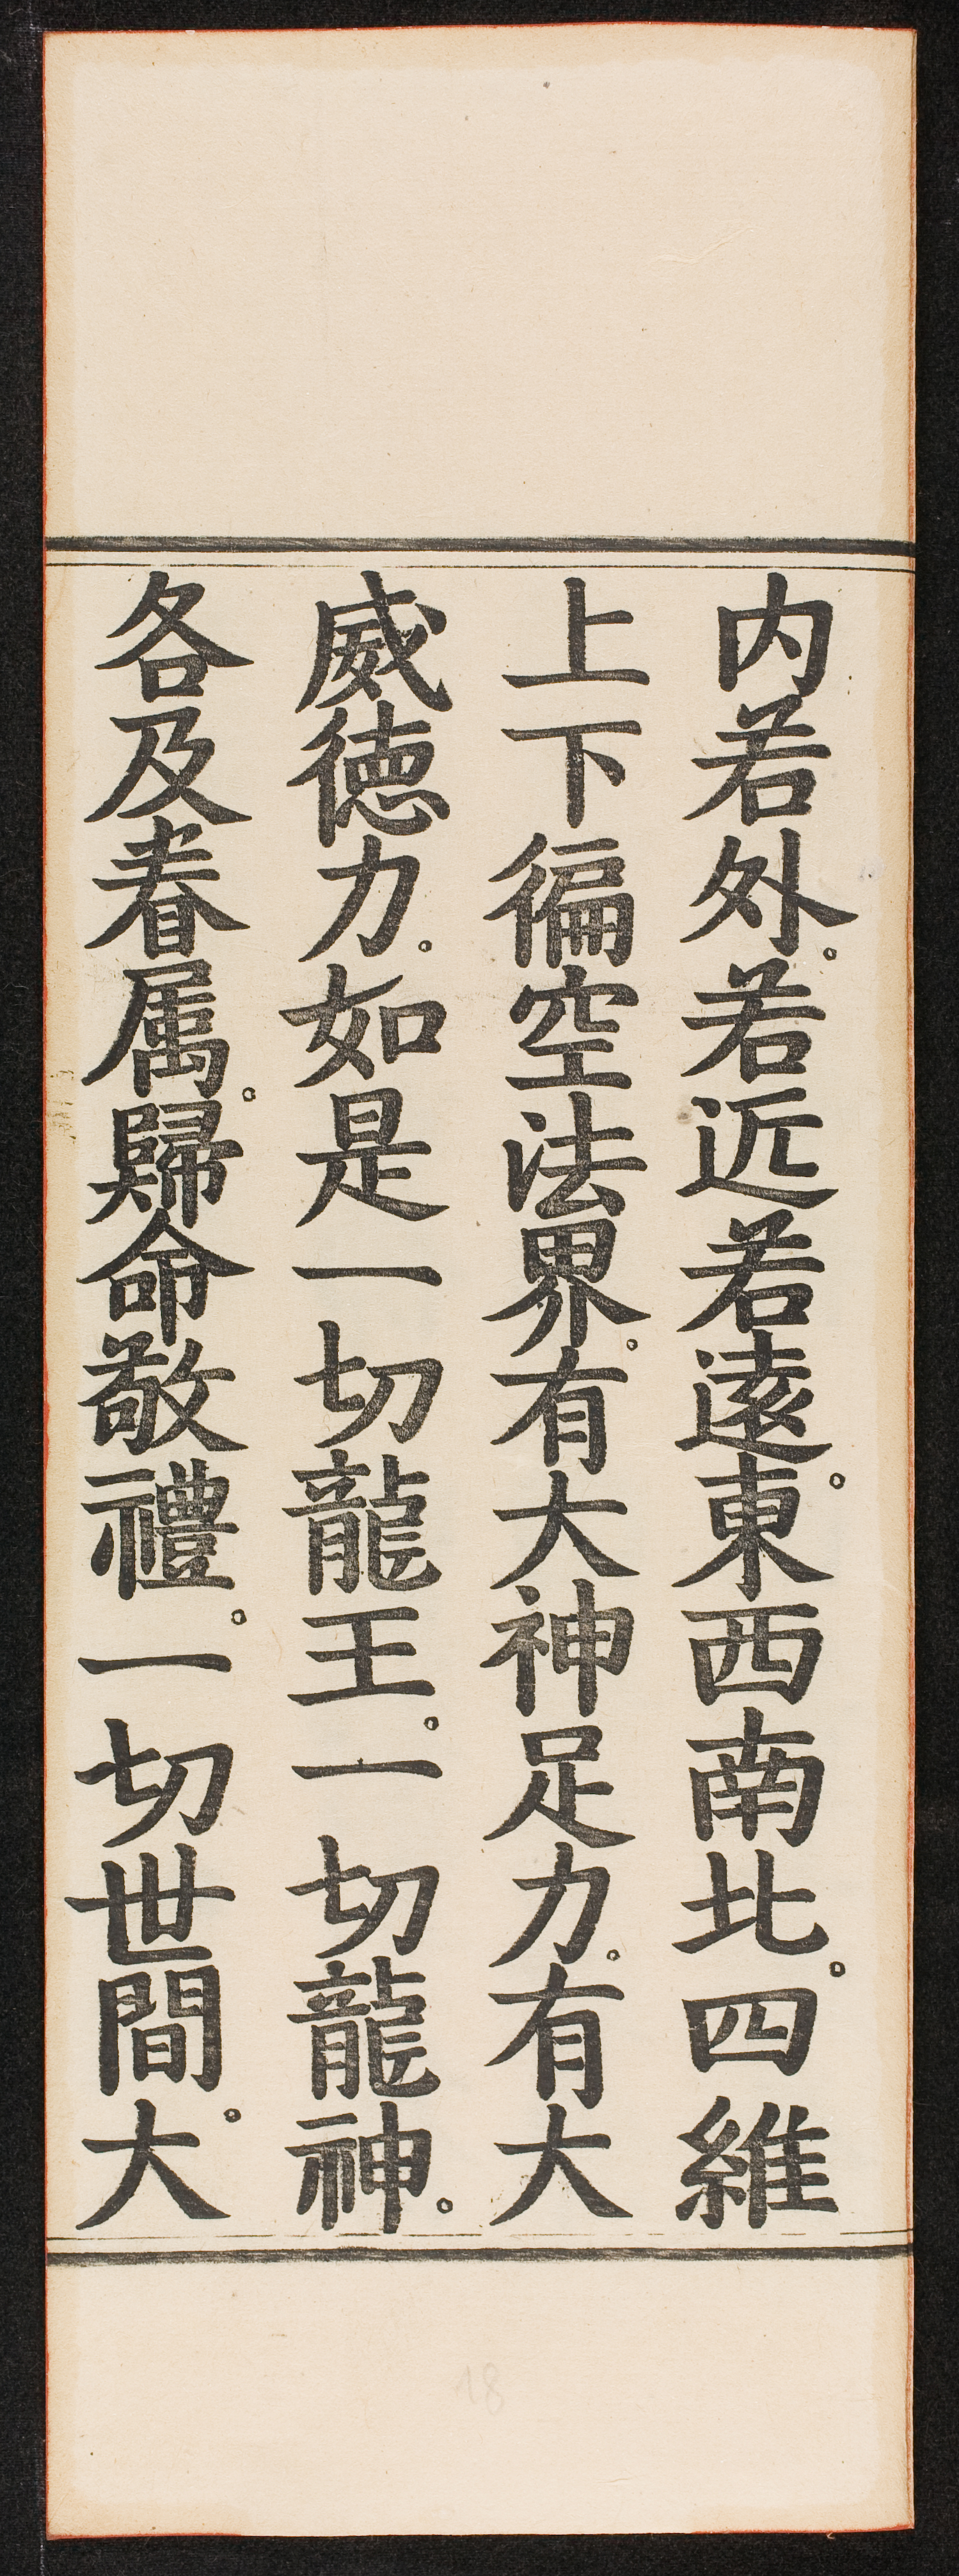 内若外。若近若遠。東西南北。四維
上下徧空法界。有大神足力。有大
威徳力。如是一切龍王。一切龍神。
各及眷属。歸命敬禮。一切世間。大
18